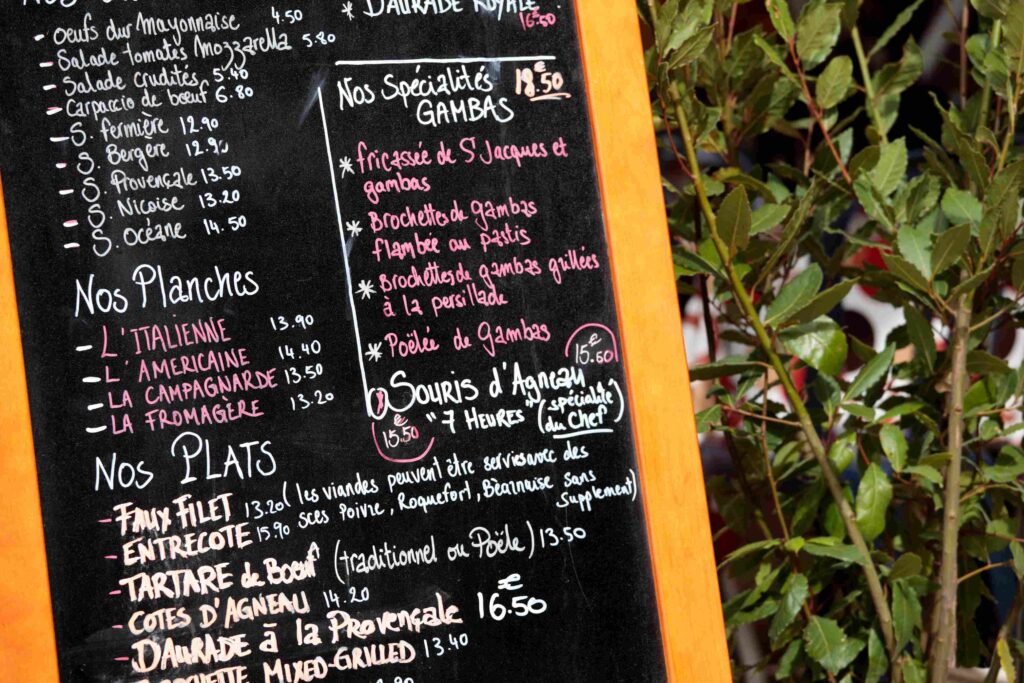 - Oeufs dur Mayonnaise 4.50
- Salade Tomates Mozzarella 5.80
- Salade crudités 5.40
- Carpaccio de boeuf 6.80
- S. fermière 12.90
- S. Bergère 12.90
- S. Provençale 13.50
- S. Nicoise 13.20
- S. Océane 14.50
Nos Planches
- L'ITALIENNE 13.90
- L'AMERICAINE 14.40
- LA CAMPAGNARDE 13.50
- LA FROMAGÈRE 13.20
Nos PLATS
- FAUX FILET 13.20 (les viandes peuvent être servies avec des
sces Poivre, Roquefort, Béarnaise sans
supplement)
- ENTRECOTE 15.90
- TARTARE de Boeuf (traditionnel ou Poële) 13.50
- COTES D'AGNEAU 14.20
- DAURADE à la Provençale 16.50 €
MIXED-GRILLED 13.40
* DAURADE ROYALE 16.50
Nos Spécialités 18.50 €
GAMBAS
* fricassée de St Jacques et
gambas
* Brochettes de gambas
flambée au pastis
* Brochettes de gambas grillées
à la persillade
* Poëlée de Gambas
15.60 €
Souris d'Agneau
"7 HEURES" (spécialité
du Chef)
15.50 €